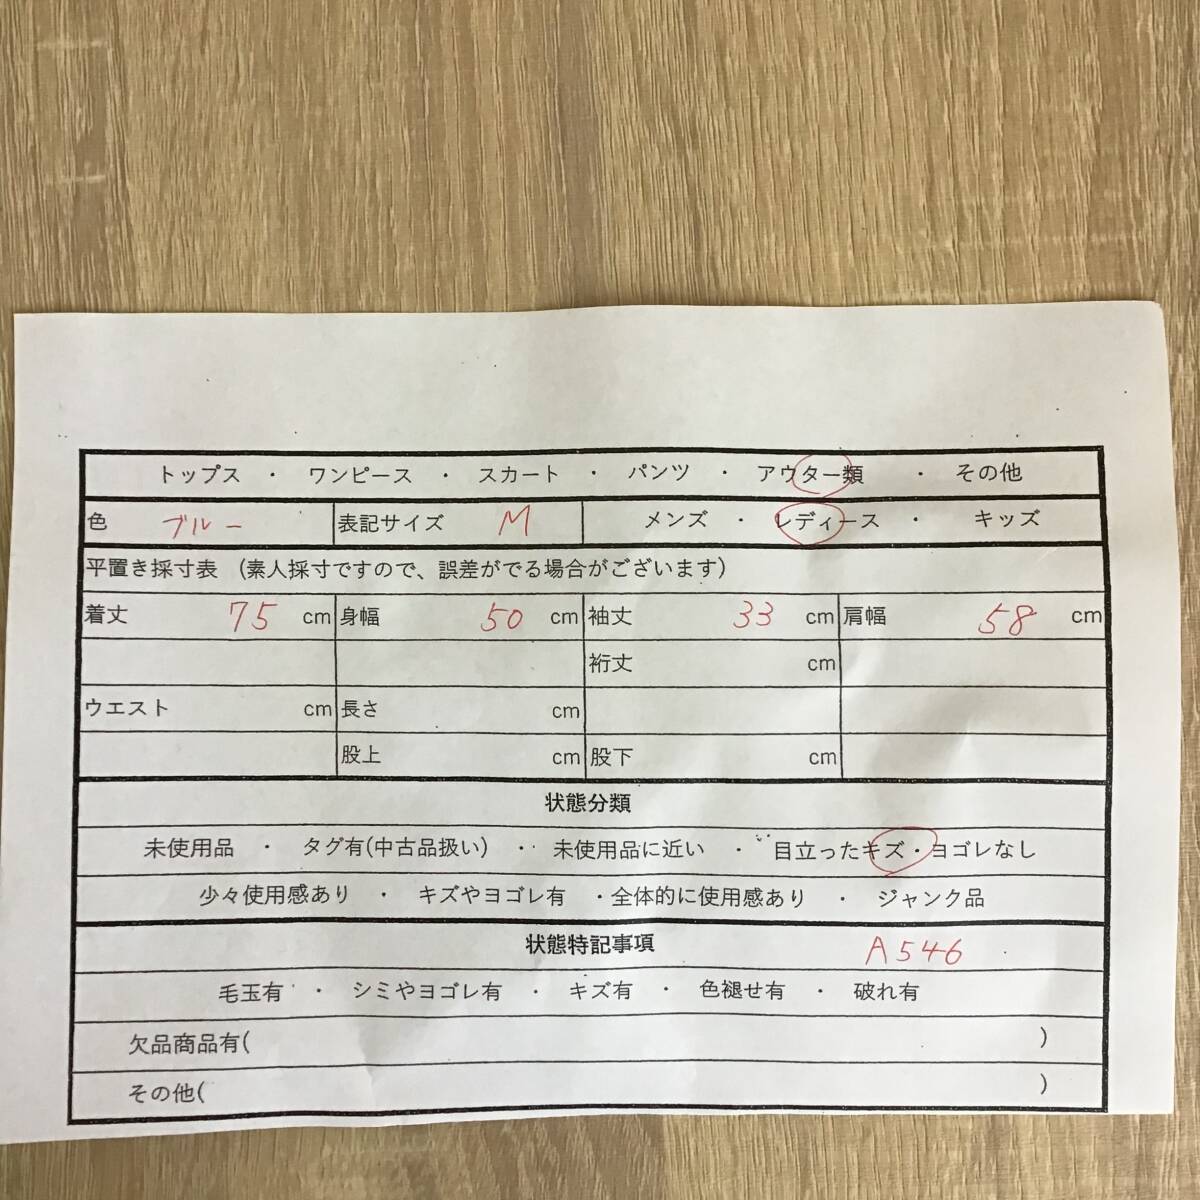 トップス ・ ワンピース ・ スカート ・ パンツ ・ アウター類 ・ その他
色 ブルー 表記サイズ M メンズ ・ レディース ・ キッズ
平置き採寸表 (素人採寸ですので、誤差がでる場合がございます)
着丈 75 cm 身幅 50 cm 袖丈 33 cm 肩幅 58 cm
裄丈 cm
ウエスト cm 長さ cm
股上 cm 股下 cm
状態分類
未使用品 ・ タグ有(中古品扱い) ・ 未使用品に近い ・ 目立ったキズ・ヨゴレなし
少々使用感あり ・ キズやヨゴレ有 ・全体的に使用感あり ・ ジャンク品
状態特記事項 A546
毛玉有 ・ シミやヨゴレ有 ・ キズ有 ・ 色褪せ有 ・ 破れ有
欠品商品有( )
その他( )